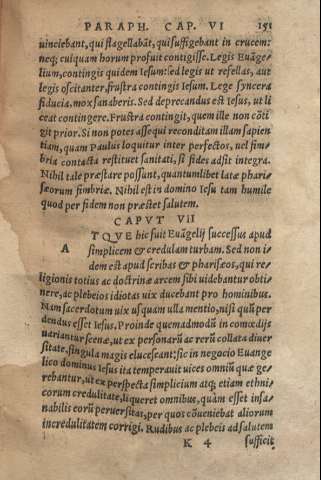 PARAPH. CAP. VI 151
uinciebant, qui flagellabãt, qui suffigebant in crucem:
neq; cuiquam horum profuit contigisse. Legis Euãge-
lium, contingis quidem Iesum: sed legis ut refellas, aut
legis oscitanter, frustra contingis Iesum. Lege syncera
fiducia, mox sanaberis. Sed deprecandus est Iesus, ut li
ceat contingere. Frustra contingit, quem ille non cõti
git prior. Si non potes assequi reconditam illam sapien
tiam, quam Paulus loquitur inter perfectos, uel fim-
bria contacta restituet sanitati, si fides adsit integra.
Nihil tale præstare possunt, quantumlibet latæ phari-
sæorum fimbriæ. Nihil est in domino Iesu tam humile
quod per fidem non præstet salutem.
CAPVT VII
ATQVE hic fuit Euãgelij successus apud
simplicem & credulam turbam. Sed non i-
dem est apud scribas & pharisæos, qui re-
ligionis totius ac doctrinæ arcem sibi uidebantur obti-
nere, ac plebeios idiotas uix ducebant pro hominibus.
Nam sacerdotum uix usquam ulla mentio, nisi quũ per
dendus esset Iesus. Proinde quemadmodũ in comœdijs
uariantur scenæ, ut ex personarũ ac rerũ collata diuer
sitate, singula magis elucescant: sic in negocio Euange
lico dominus Iesus ita temperauit uices omniũ quæ ge-
rebantur, ut ex perspecta simplicium atq; etiam ethni
corum credulitate, liqueret omnibus, quàm esset insa-
nabilis eorũ peruersitas, per quos cõueniebat aliorum
incredulitatem corrigi. Rudibus ac plebeis ad salutem
K 4 sufficit